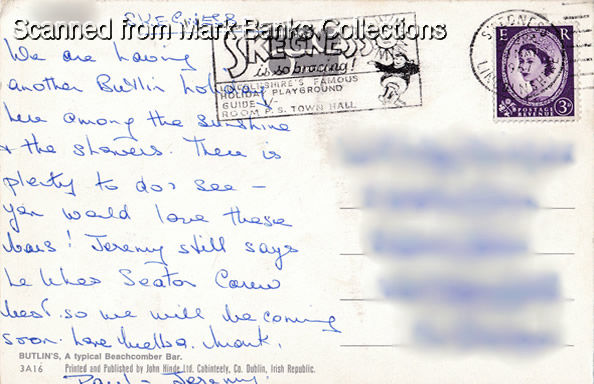 SKEGNESS
Scanned from Mark Banks Collections
We are having
another Butlin holiday
here among the sunshine
& the showers. There is
plenty to do & see –
you would love these
bars! Jeremy still says
he likes Seaton Carew
best so we will be coming
soon. Love Melba. Mark.
Paul – Jeremy.
SKEGNESS
is so bracing!
LINCOLNSHIRE'S FAMOUS
HOLIDAY PLAYGROUND
GUIDE
ROOM P.S. TOWN HALL
SKEGNESS
E R
POSTAGE REVENUE
3D
BUTLIN'S, A typical Beachcomber Bar.
3A16 Printed and Published by John Hinde Ltd. Cabinteely, Co. Dublin, Irish Republic.